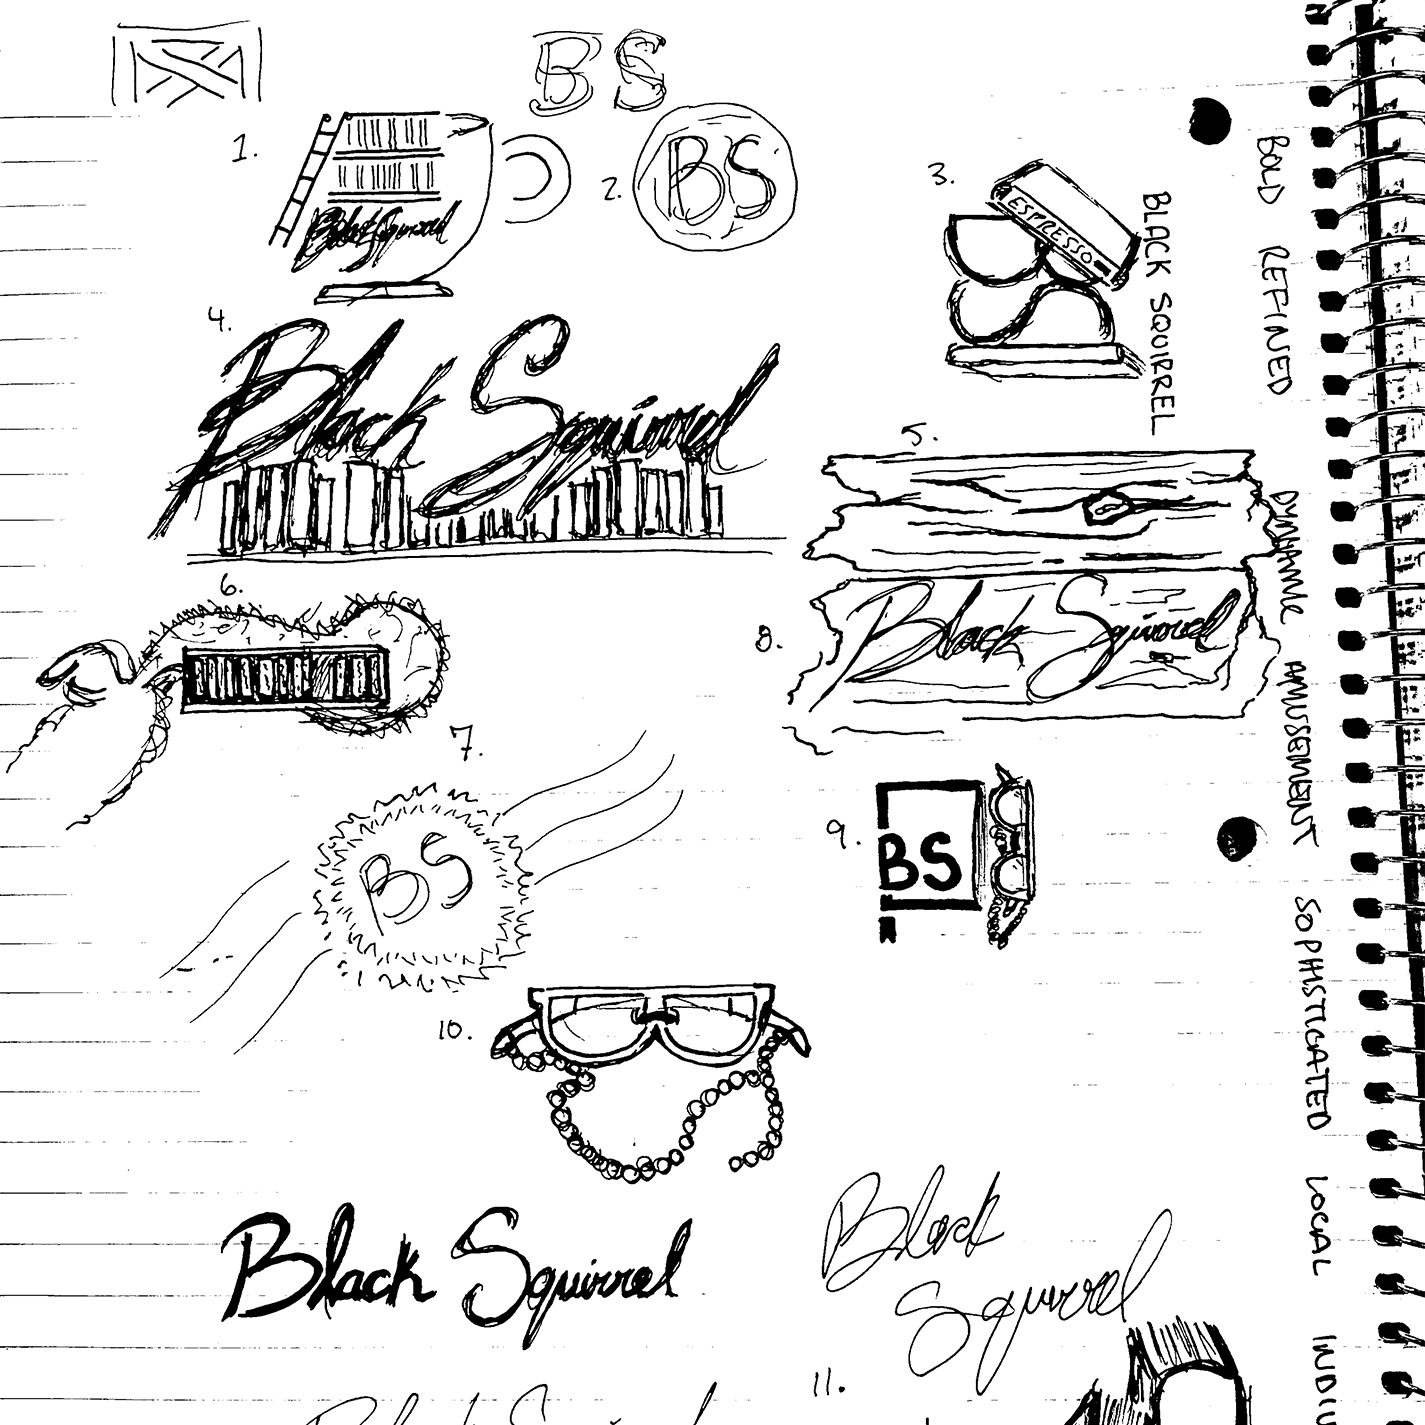 BS
1.
Black Squirrel
2.
BS
3.
ESPRESSO
BLACK SQUIRREL
4.
Black Squirrel
5.
6.
7.
BS
8.
Black Squirrel
9.
BS
10.
Black Squirrel
Black
Squirrel
11.
Black Squirrel
BOLD REFINED DYNAMIC AMUSEMENT SOPHISTICATED LOCAL